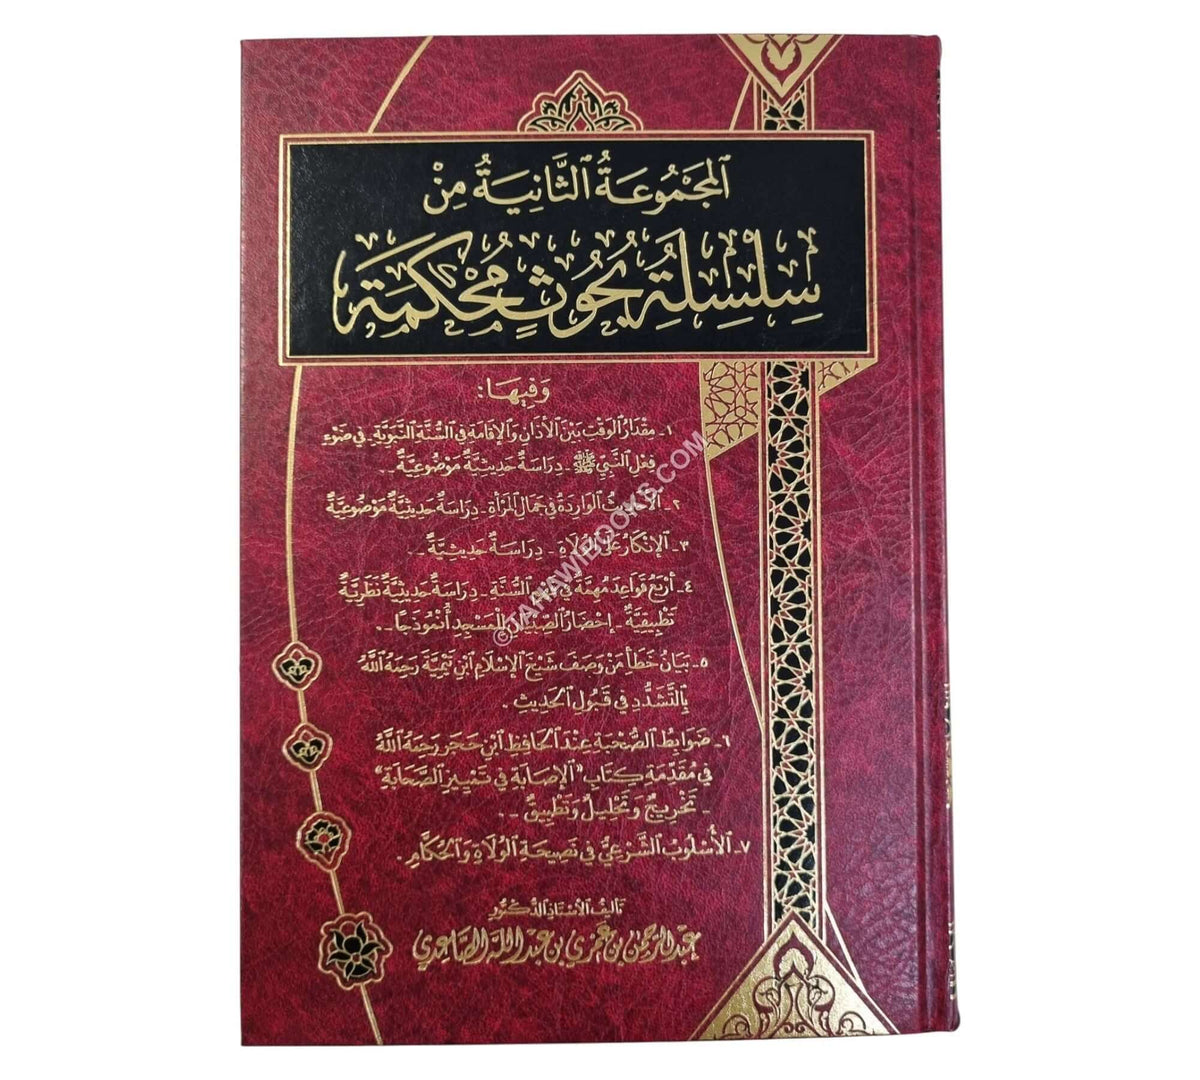 المَجْمُوعَةُ الثَّانِيَةُ مِنْ
سِلْسِلَةِ بُحُوثٍ مُحْكَمَةٍ
وَفِيهَا:
١- مِقْدَارُ الوَقْتِ بَيْنَ الأَذَانِ وَالإِقَامَةِ فِي السُّنَّةِ النَّبَوِيَّةِ - فِي ضَوْءِ
فِعْلِ النَّبِيِّ ﷺ - دِرَاسَةٌ حَدِيثِيَّةٌ مَوْضُوعِيَّةٌ -.
٢- الأَحَادِيثُ الوَارِدَةُ فِي جَمَالِ المَرْأَةِ - دِرَاسَةٌ حَدِيثِيَّةٌ مَوْضُوعِيَّةٌ
٣- الإِنْكَارُ عَلَى الوُلَاةِ - دِرَاسَةٌ حَدِيثِيَّةٌ -.
٤- أَرْبَعُ قَوَاعِدَ مُهِمَّةٍ فِي السُّنَّةِ - دِرَاسَةٌ حَدِيثِيَّةٌ نَظَرِيَّةٌ
تَطْبِيقِيَّةٌ - إِحْضَارُ الصِّبْيَانِ لِلْمَسْجِدِ أُنْمُوذَجًا -.
٥- بَيَانُ خَطَأِ مَنْ وَصَفَ شَيْخَ الإِسْلَامِ ابْنَ تَيْمِيَّةَ رَحِمَهُ اللَّهُ
بِالتَّشَدُّدِ فِي قَبُولِ الحَدِيثِ.
٦- ضَوَابِطُ الصُّحْبَةِ عِنْدَ الحَافِظِ ابْنِ حَجَرٍ رَحِمَهُ اللَّهُ
فِي مُقَدِّمَةِ كِتَابِ "الإِصَابَةِ فِي تَمْيِيزِ الصَّحَابَةِ"
- تَخْرِيجٌ وَتَحْلِيلٌ وَتَطْبِيقٌ -.
٧- الأُسْلُوبُ الشَّرْعِيُّ فِي نَصِيحَةِ الوُلَاةِ وَالحُكَّامِ.
تَأْلِيفُ الأُسْتَاذِ الدُّكْتُورِ
عَبْدِ الرَّحْمَنِ بْنِ عُمَرِيِّ بْنِ عَبْدِ اللَّهِ الصَّاعِدِيِّ
©TAHAWIBOOKS.COM